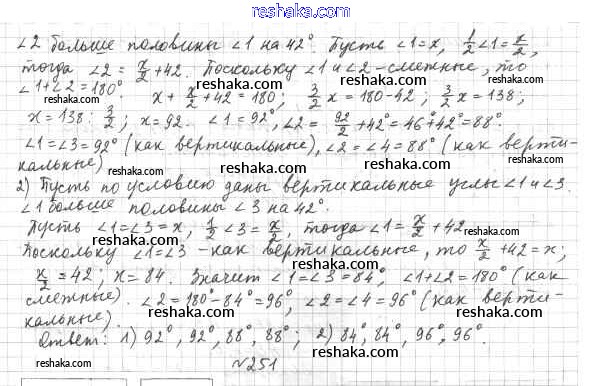 reshaka.com
∠2 больше половины ∠1 на 42°. Пусть ∠1=x, 1/2∠1=x/2,
reshaka.com reshaka.com
тогда ∠2= x/2+42. Поскольку ∠1 и ∠2 - смежные, то
∠1+∠2=180° x+ x/2+42=180; 3/2 x=180-42; 3/2 x=138;
reshaka.com reshaka.com reshaka.com
x=138: 3/2; x=92. ∠1=92°, ∠2= 92/2+42°=46°+42°=88°.
∠1=∠3=92° (как вертикальные), ∠2=∠4=88° (как верти-
кальные)
reshaka.com reshaka.com reshaka.com
2) Пусть по условию даны вертикальные углы ∠1 и ∠3.
∠1 больше половины ∠3 на 42°.
reshaka.com reshaka.com
Пусть ∠1=∠3=x, 1/2∠3=x/2, тогда ∠1= x/2+42
Поскольку ∠1=∠3 -как вертикальные, то x/2+42=x;
reshaka.com reshaka.com
x/2=42; x=84. Значит ∠1=∠3=84°, ∠1+∠2=180° (как
reshaka.com reshaka.com
смежные). ∠2=180°-84°=96°, ∠2=∠4=96° (как верти-
reshaka.com
кальные).
reshaka.com reshaka.com
Ответ: 1) 92°, 92°, 88°, 88°; 2) 84°, 84°, 96°, 96°.
reshaka.com reshaka.com
№251